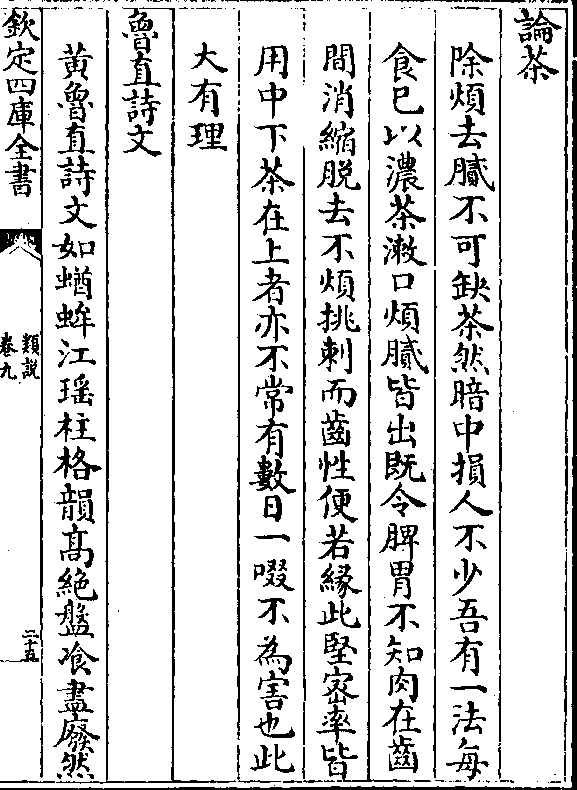 論茶
除煩去膩不可缺茶然暗中損人不少吾有一法每
食已以濃茶漱口煩膩皆出既令脾胃不知肉在齒
間消縮脱去不煩挑刺而齒性便若縁此堅宻率皆
用中下茶在上者亦不常有數日一啜不為害也此
大有理
魯直詩文
黄魯直詩文如蝤蛑江瑶柱格韻髙絶盤飡盡廢然
欽定四庫全書
類說
卷九
二十五